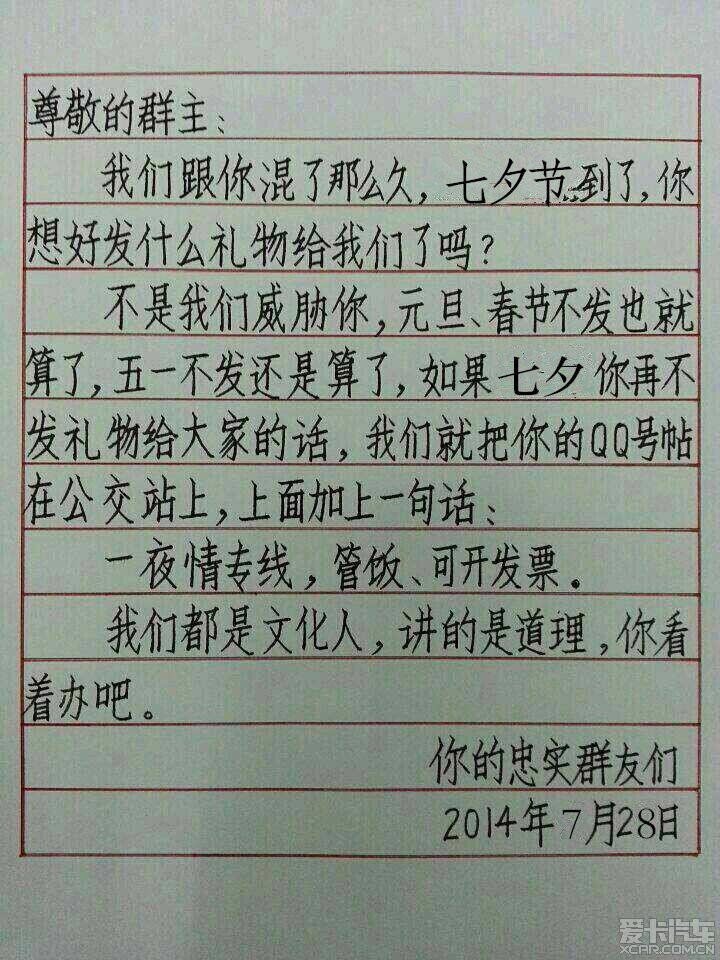 尊敬的群主：
我们跟你混了那么久，七夕节到了，你
想好发什么礼物给我们了吗？
不是我们威胁你，元旦、春节不发也就
算了，五一不发还是算了，如果七夕你再不
发礼物给大家的话，我们就把你的QQ号帖
在公交站上，上面加上一句话：
一夜情专线，管饭、可开发票。
我们都是文化人，讲的是道理，你看
着办吧。
你的忠实群友们
2014年7月28日
爱卡汽车
XCAR.COM.CN